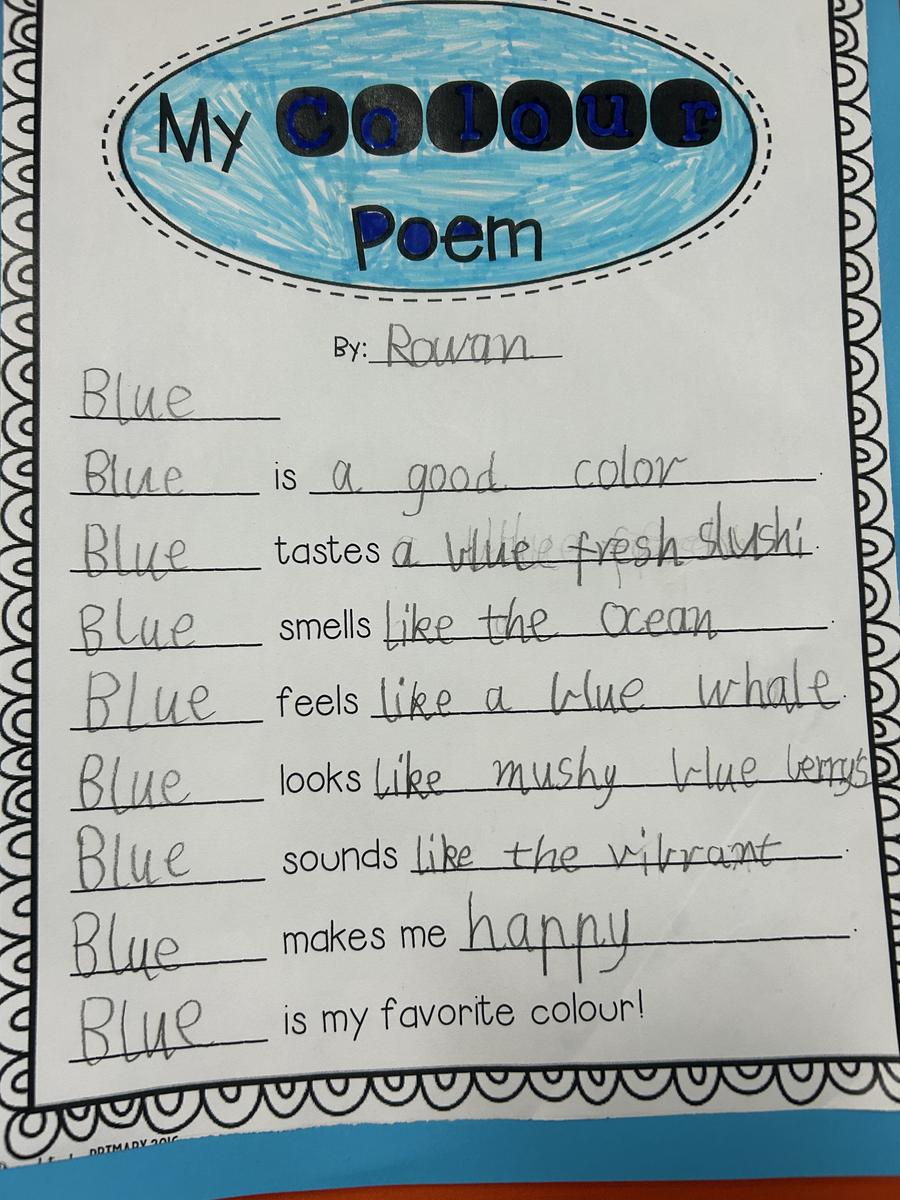 My Colour
Poem
By: Rowan
Blue
Blue is a good color.
Blue tastes a blue fresh slushi.
Blue smells like the Ocean.
Blue feels like a blue whale.
Blue looks like mushy blue berry's
Blue sounds like the vibrant.
Blue makes me happy.
Blue is my favorite colour!
PRIMARY 2016